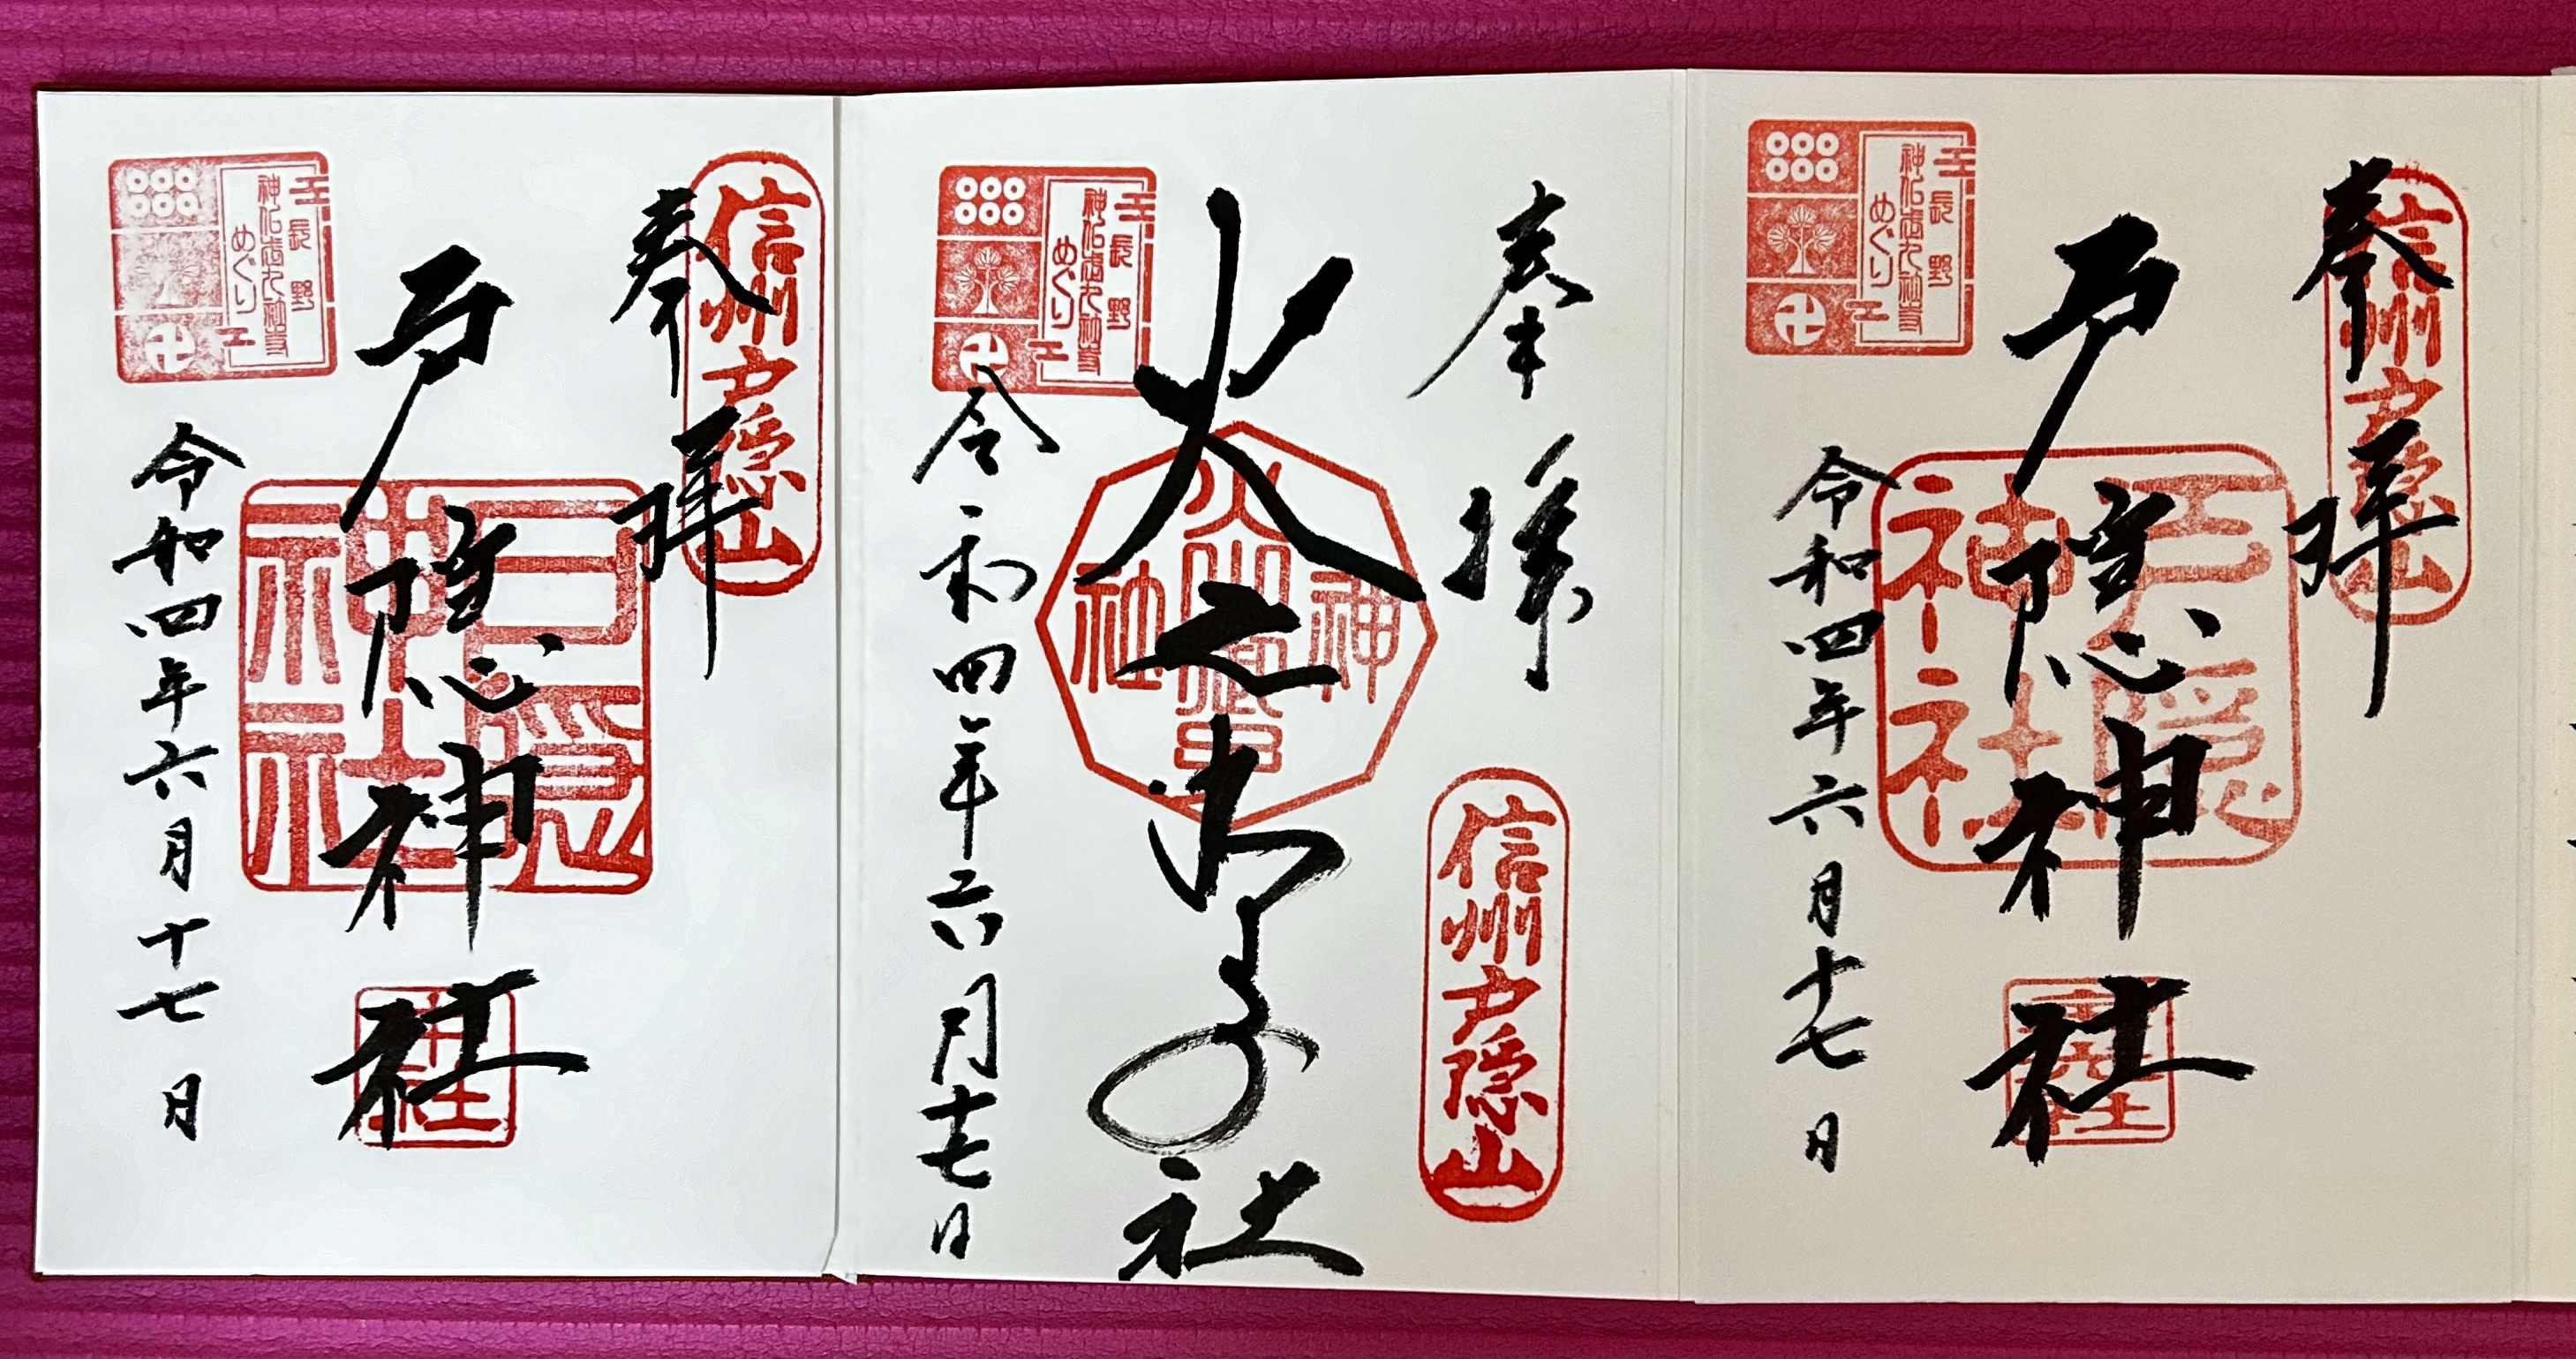 奉拝
信州戸隠山
戸隠神社
戸隠神社
令和四年六月十七日
長野
めぐり
奉拝
信州戸隠山
火之御子社
令和四年六月十七日
長野
めぐり
奉拝
信州戸隠山
戸隠神社
戸隠神社
中社
令和四年六月十七日
長野
めぐり